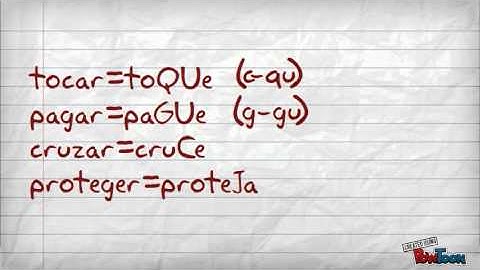 tocar=toQUe (c-qu)
pagar=paGUe (g-gu)
cruzar=cruCe
proteger=proteJa
CREATED USING
PowToon